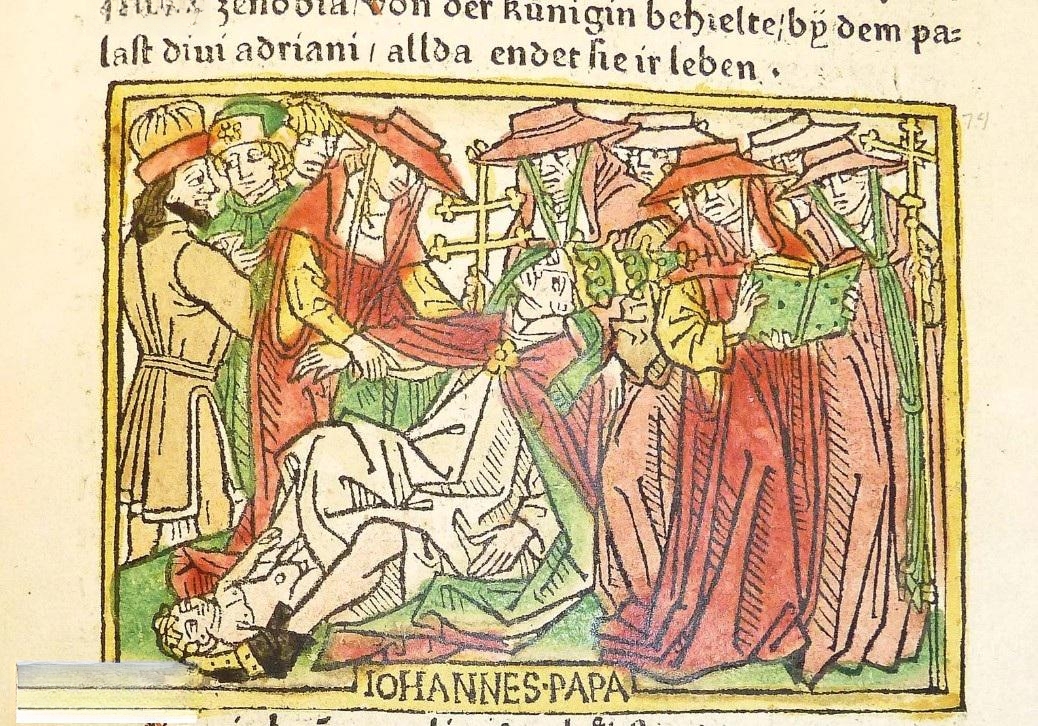 zenobia/ von der künigin behielte/ bÿ dem pa=
last divi adriani / allda endet sie ir leben .
74
IOHANNES·PAPA